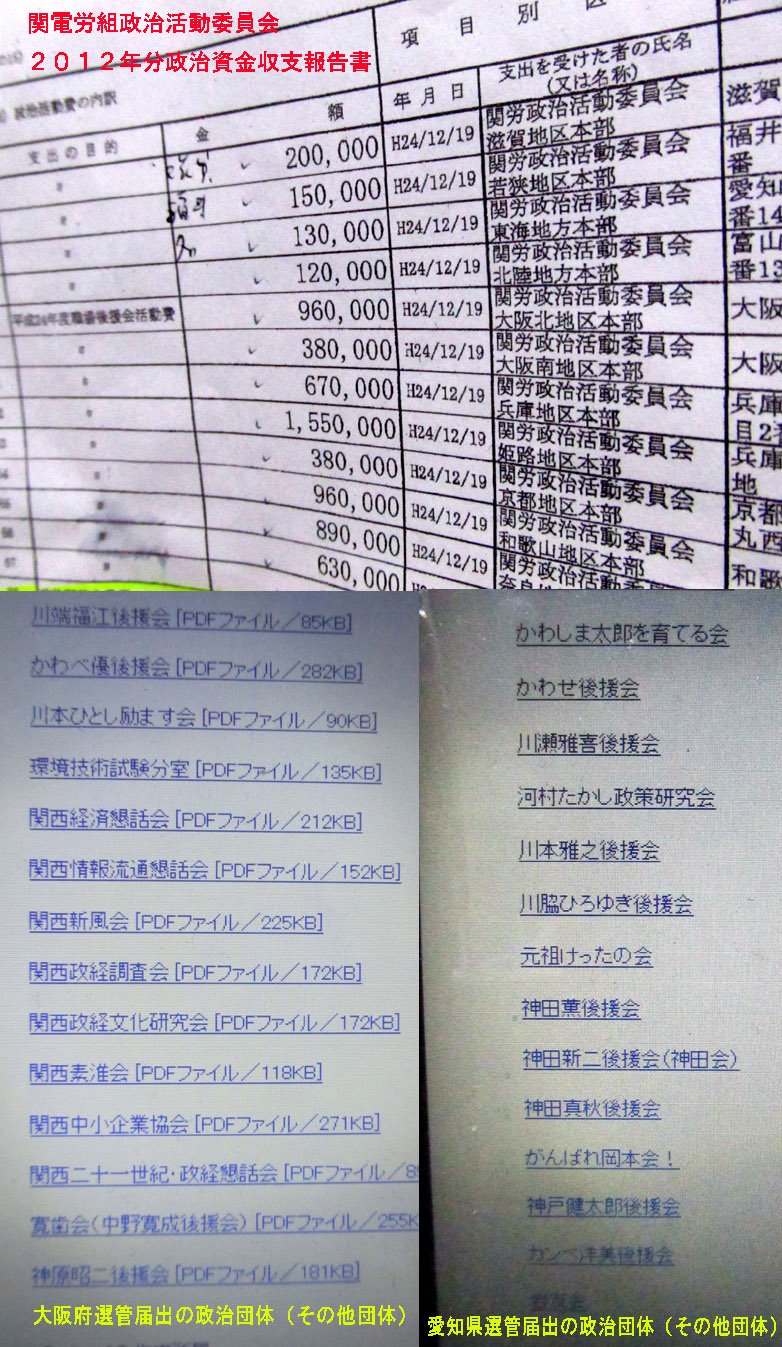 関電労組政治活動委員会
2012年分政治資金収支報告書
項目別区
政治活動費の内訳
支出の目的
金額
年月日
支出を受けた者の氏名
(又は名称)
〃 200,000 H24/12/19 関労政治活動委員会 滋賀
滋賀地区本部
〃 150,000 H24/12/19 関労政治活動委員会 福井
若狭地区本部 番
〃 130,000 H24/12/19 関労政治活動委員会 愛知
東海地方本部 番14
〃 120,000 H24/12/19 関労政治活動委員会 富山
北陸地方本部 番13
平成24年度職場後援会活動費 960,000 H24/12/19 関労政治活動委員会 大阪
大阪北地区本部
〃 380,000 H24/12/19 関労政治活動委員会 大阪
大阪南地区本部
〃 670,000 H24/12/19 関労政治活動委員会 兵庫
兵庫地区本部 目2
〃 1,550,000 H24/12/19 関労政治活動委員会 兵庫
姫路地区本部 地
〃 380,000 H24/12/19 関労政治活動委員会 京都
京都地区本部 丸西
〃 960,000 H24/12/19 関労政治活動委員会 和歌
和歌山地区本部
〃 890,000 H24/12/19 関労政治活動委員会
〃 630,000
川端福江後援会 [PDFファイル/85KB]
かわべ優後援会 [PDFファイル/282KB]
川本ひとし励ます会 [PDFファイル/90KB]
環境技術試験分室 [PDFファイル/135KB]
関西経済懇話会 [PDFファイル/212KB]
関西情報流通懇話会 [PDFファイル/152KB]
関西新風会 [PDFファイル/225KB]
関西政経調査会 [PDFファイル/172KB]
関西政経文化研究会 [PDFファイル/172KB]
関西素淮会 [PDFファイル/118KB]
関西中小企業協会 [PDFファイル/271KB]
関西二十一世紀・政経懇話会 [PDFファイル/8
寛歯会(中野寛成後援会) [PDFファイル/255K
神原昭二後援会 [PDFファイル/181KB]
大阪府選管届出の政治団体(その他団体)
かわしま太郎を育てる会
かわせ後援会
川瀬雅喜後援会
河村たかし政策研究会
川本雅之後援会
川脇ひろゆき後援会
元祖けったの会
神田薫後援会
神田新二後援会(神田会)
神田真秋後援会
がんばれ岡本会!
神戸健太郎後援会
カンベ洋美後援会
愛知県選管届出の政治団体(その他団体)